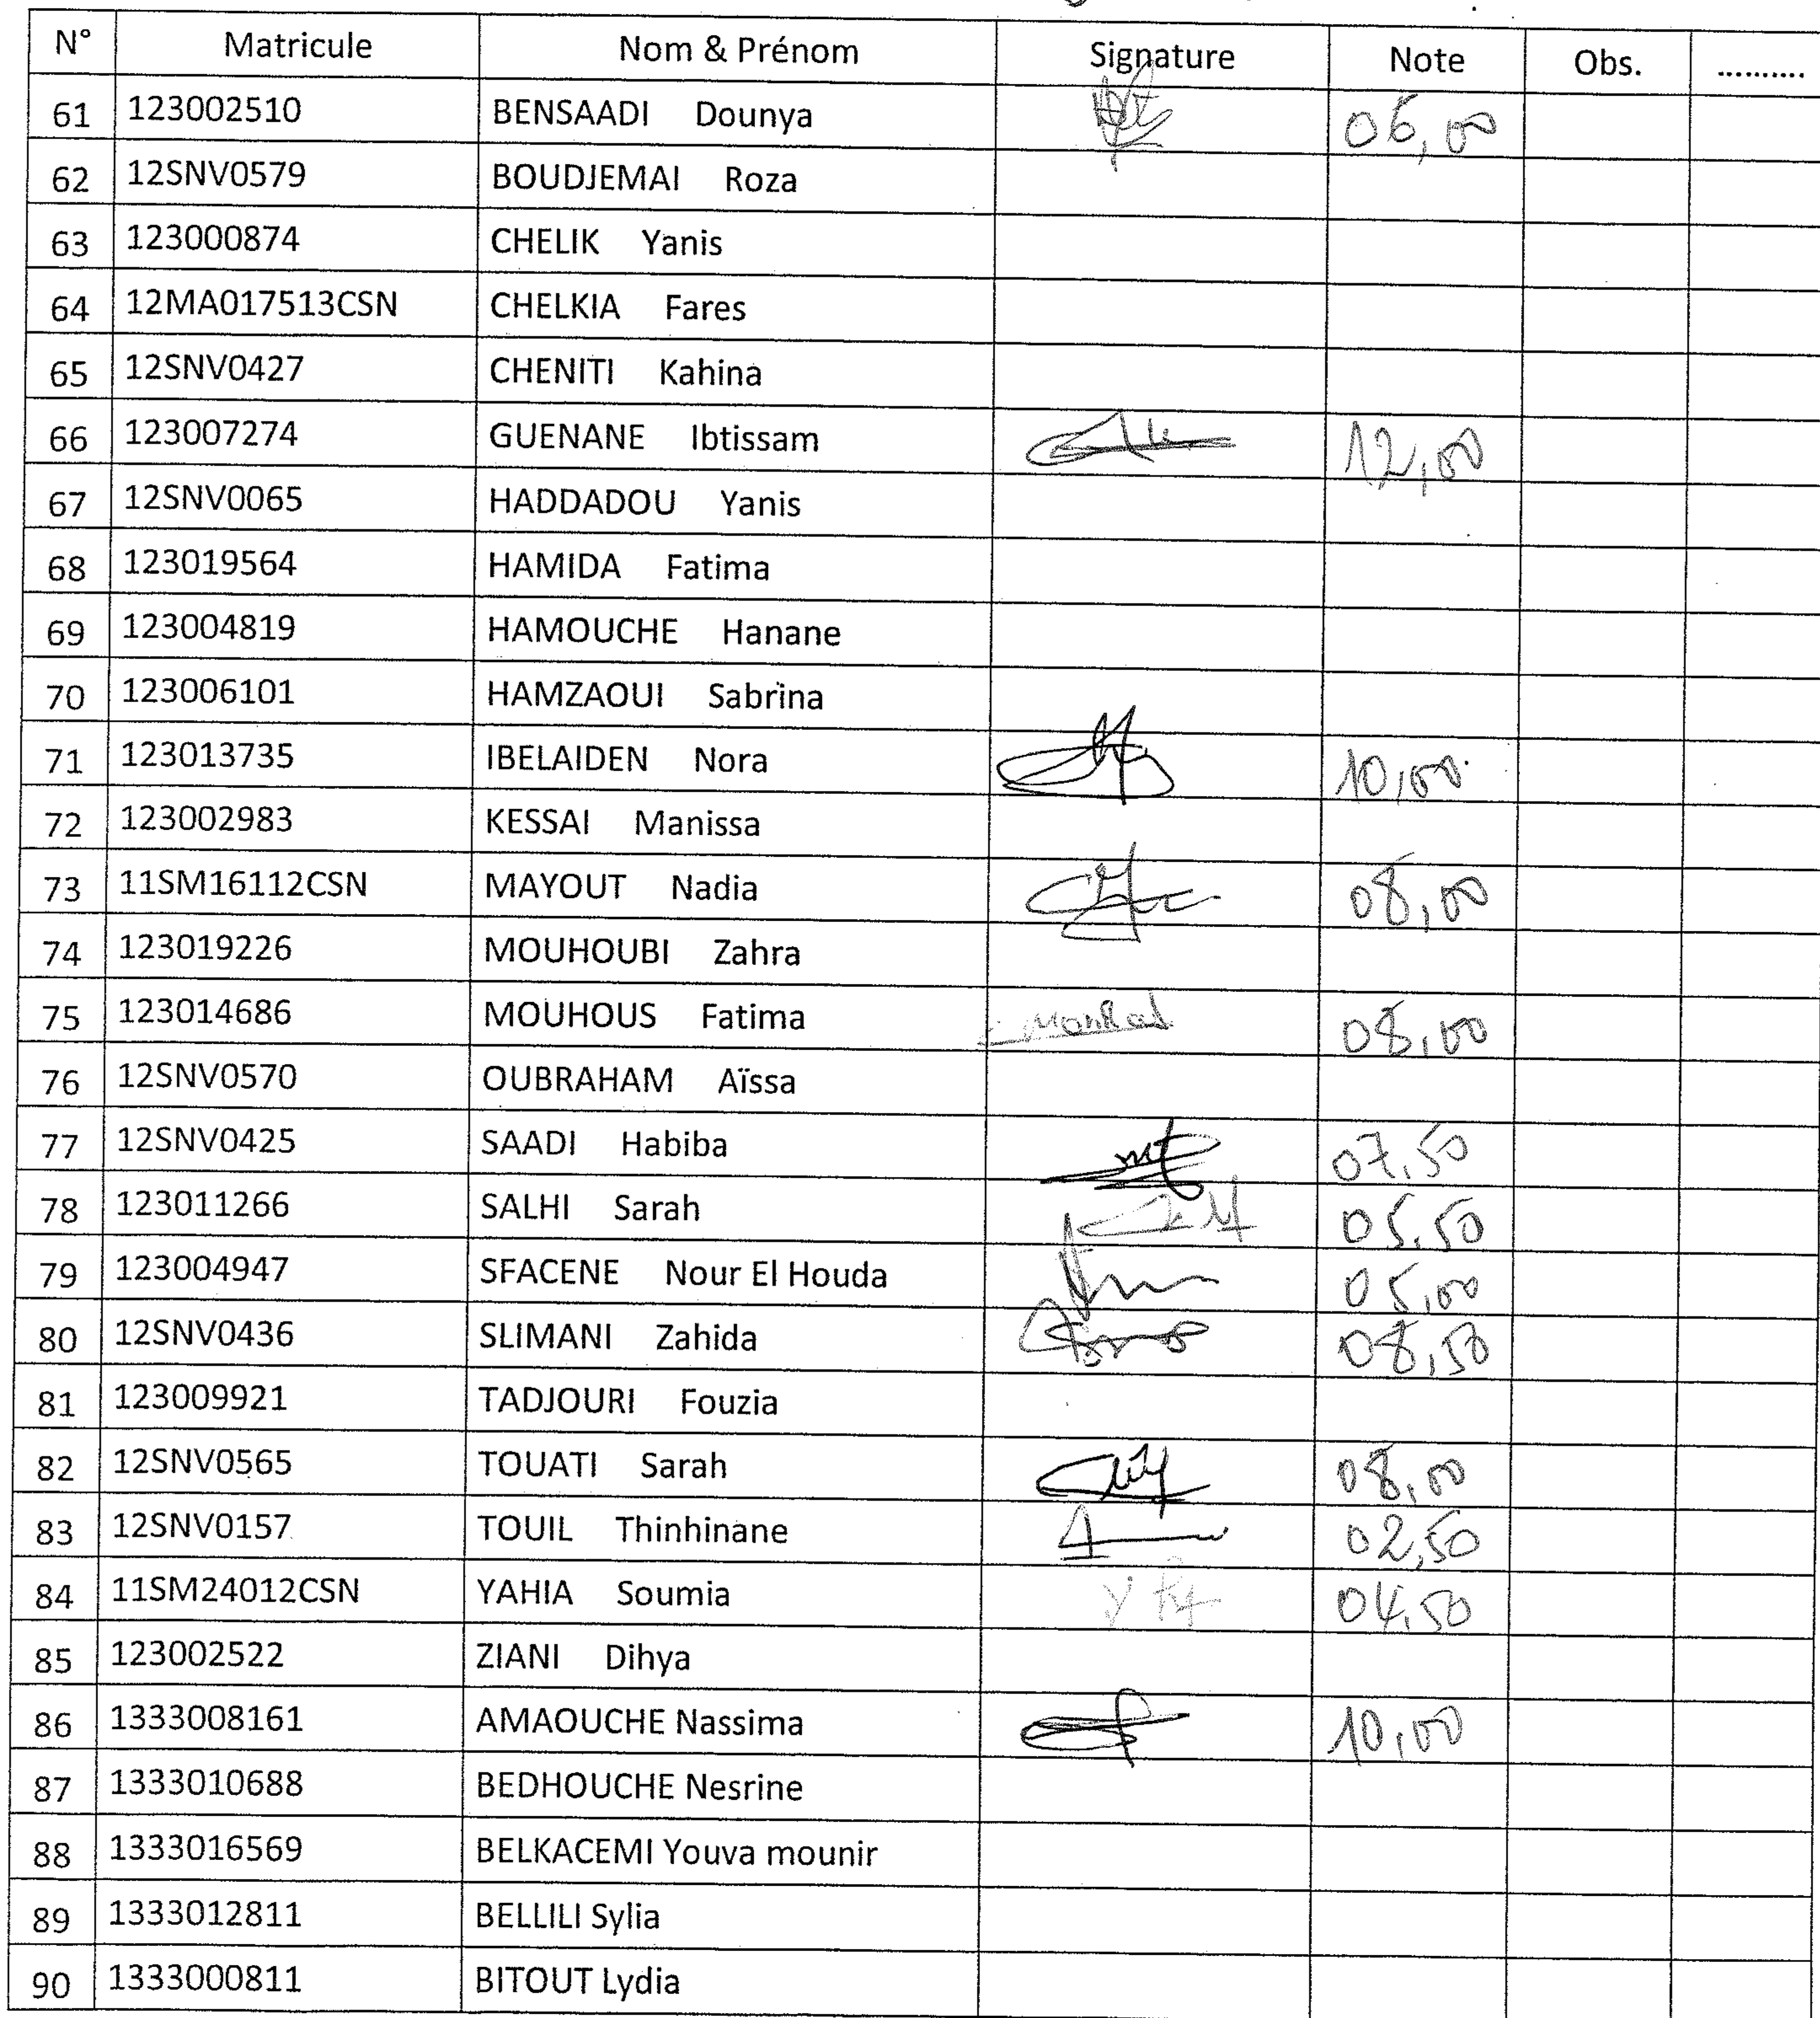 N° Matricule Nom & Prénom Signature Note Obs. ..........
61 123002510 BENSAADI Dounya 06,00
62 12SNV0579 BOUDJEMAI Roza
63 123000874 CHELIK Yanis
64 12MA017513CSN CHELKIA Fares
65 12SNV0427 CHENITI Kahina
66 123007274 GUENANE Ibtissam 12,00
67 12SNV0065 HADDADOU Yanis
68 123019564 HAMIDA Fatima
69 123004819 HAMOUCHE Hanane
70 123006101 HAMZAOUI Sabrina
71 123013735 IBELAIDEN Nora 10,00
72 123002983 KESSAI Manissa
73 11SM16112CSN MAYOUT Nadia 08,00
74 123019226 MOUHOUBI Zahra
75 123014686 MOUHOUS Fatima 08,00
76 12SNV0570 OUBRAHAM Aïssa
77 12SNV0425 SAADI Habiba 07,50
78 123011266 SALHI Sarah 05,50
79 123004947 SFACENE Nour El Houda 05,00
80 12SNV0436 SLIMANI Zahida 08,50
81 123009921 TADJOURI Fouzia
82 12SNV0565 TOUATI Sarah 08,00
83 12SNV0157 TOUIL Thinhinane 02,50
84 11SM24012CSN YAHIA Soumia 04,50
85 123002522 ZIANI Dihya
86 1333008161 AMAOUCHE Nassima 10,00
87 1333010688 BEDHOUCHE Nesrine
88 1333016569 BELKACEMI Youva mounir
89 1333012811 BELLILI Sylia
90 1333000811 BITOUT Lydia